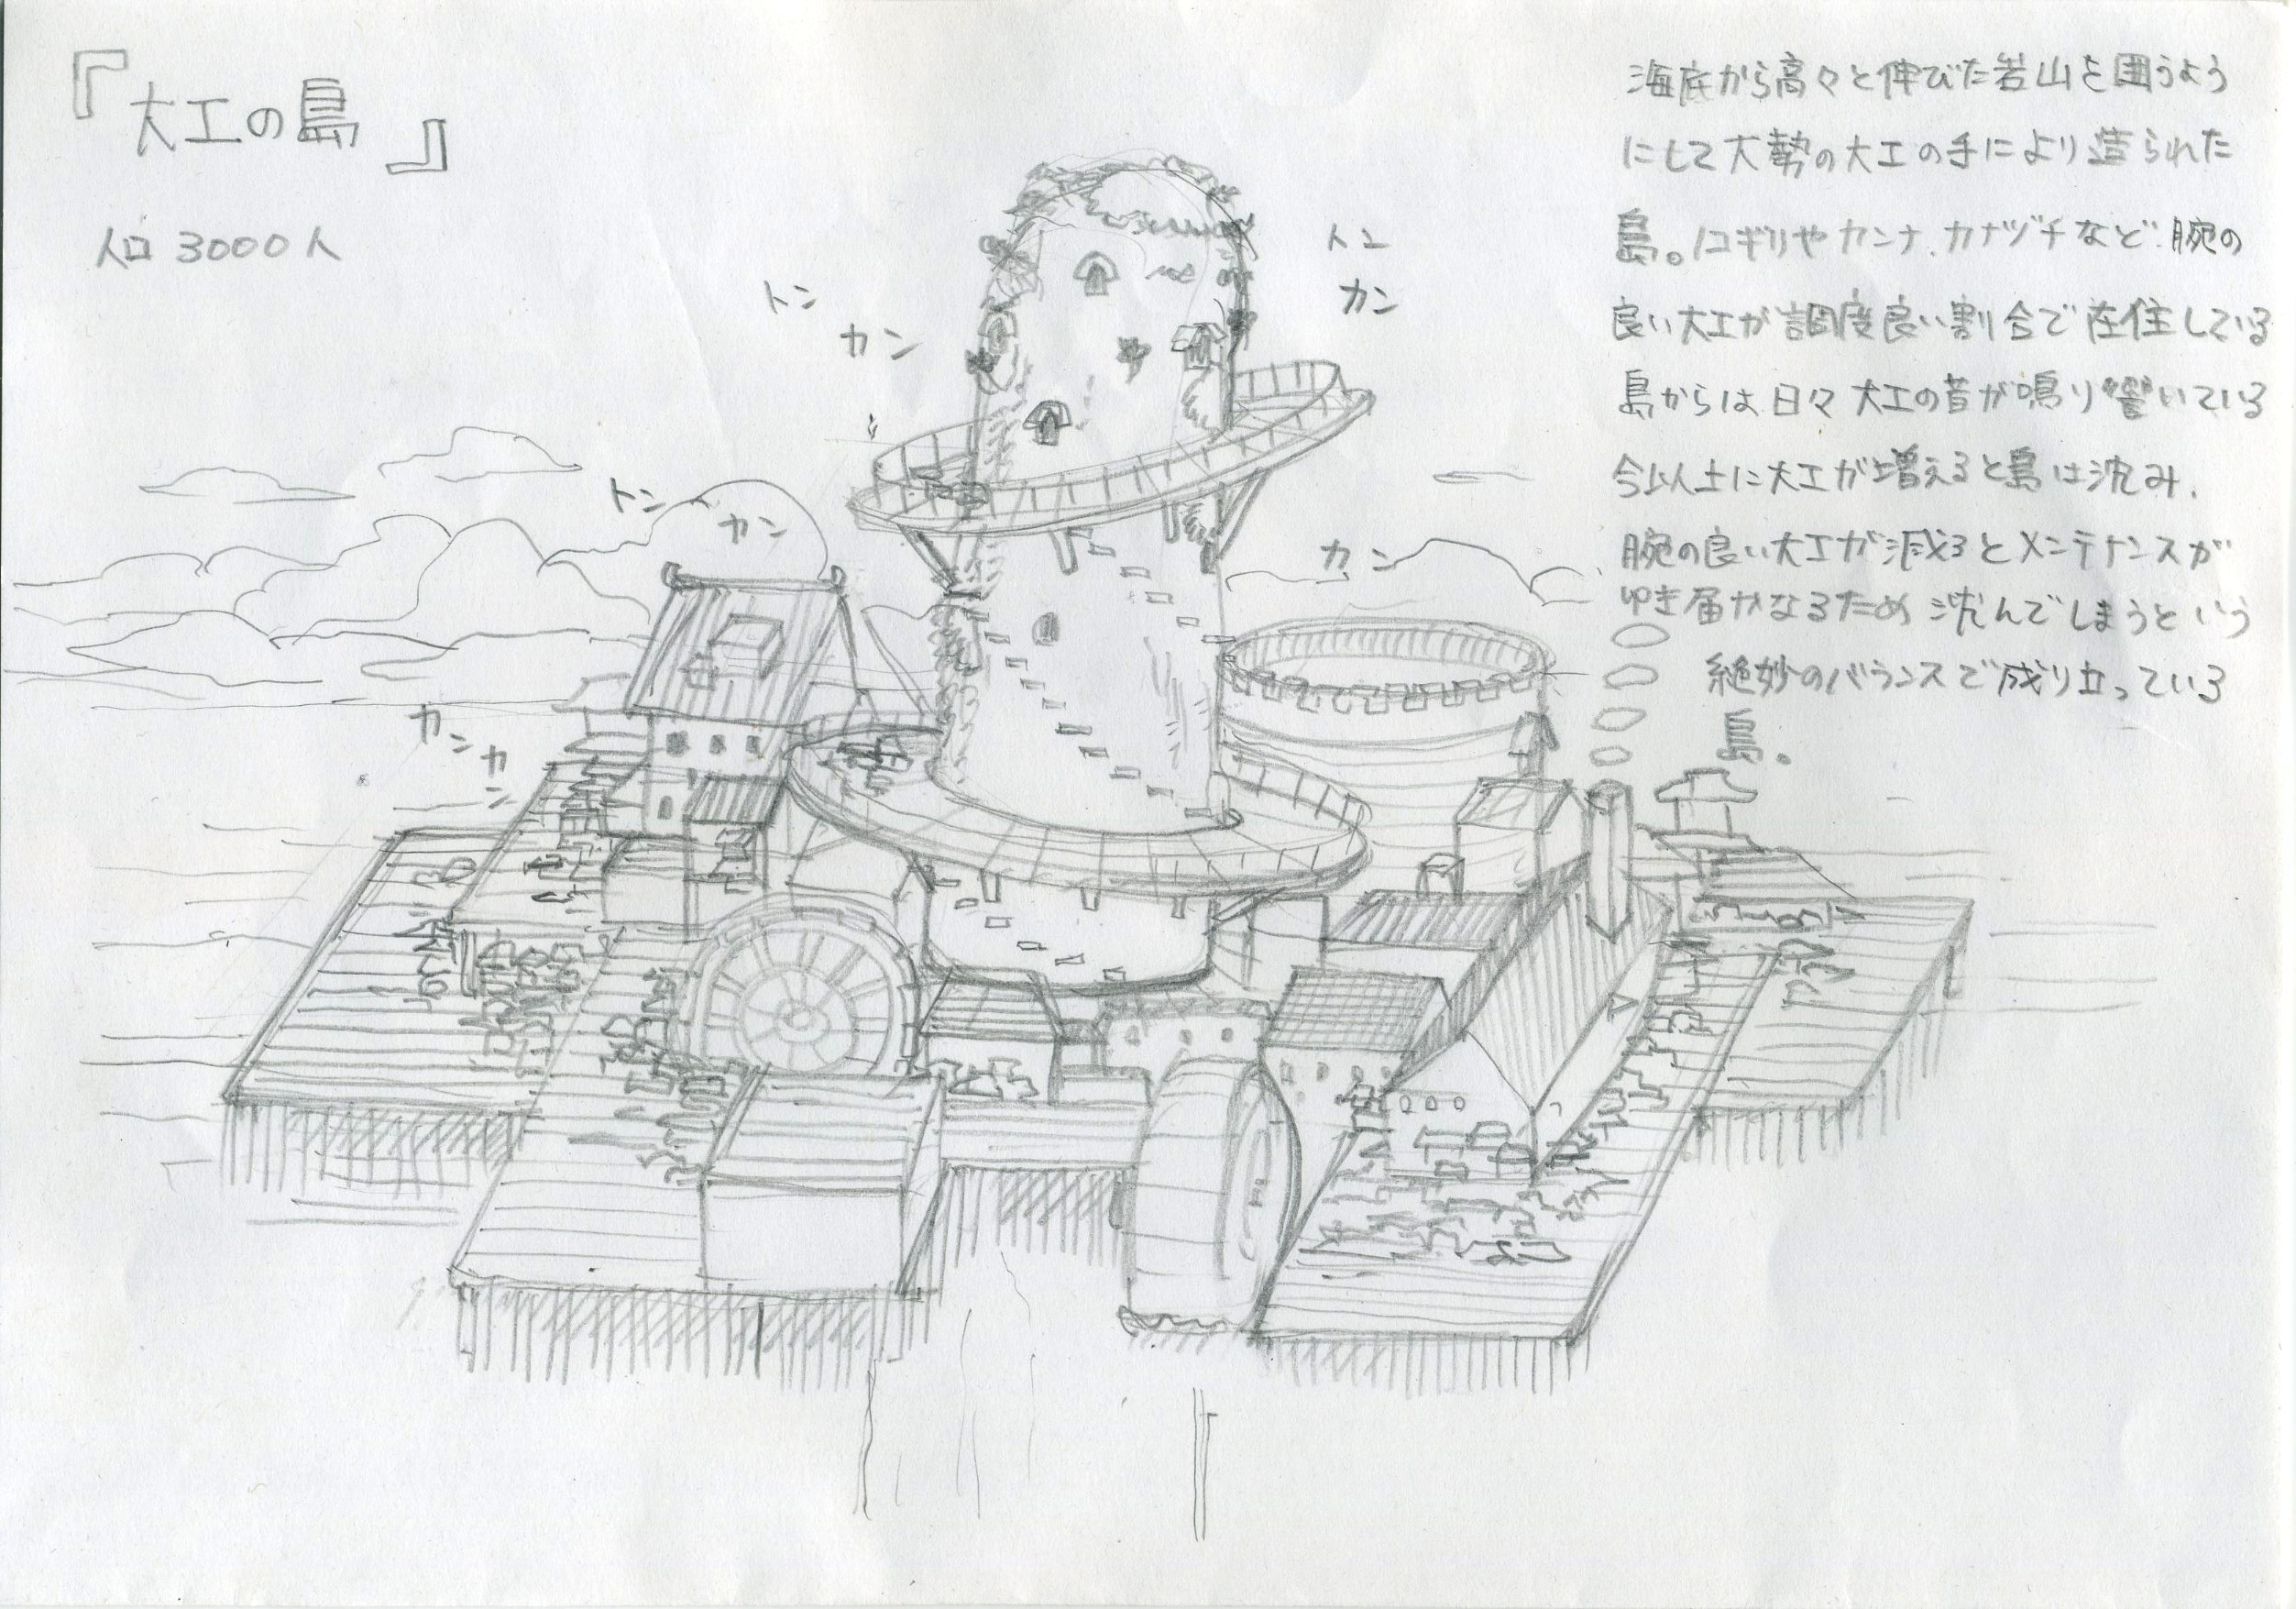 『大工の島』
人口 3000人
海底から高々と伸びた岩山を囲うよう
にして大勢の大工の手により造られた
島。ノコギリやカンナ、カナヅチなど、腕の
良い大工が調度良い割合で在住している
島からは、日々大工の音が鳴り響いている
今以上に大工が増えると島は沈み、
腕の良い大工が減るとメンテナンスが
ゆき届かなるため沈んでしまうという
絶妙のバランスで成り立っている
島。
トン
カン
トン
カン
トン
カン
カン
カン
カン